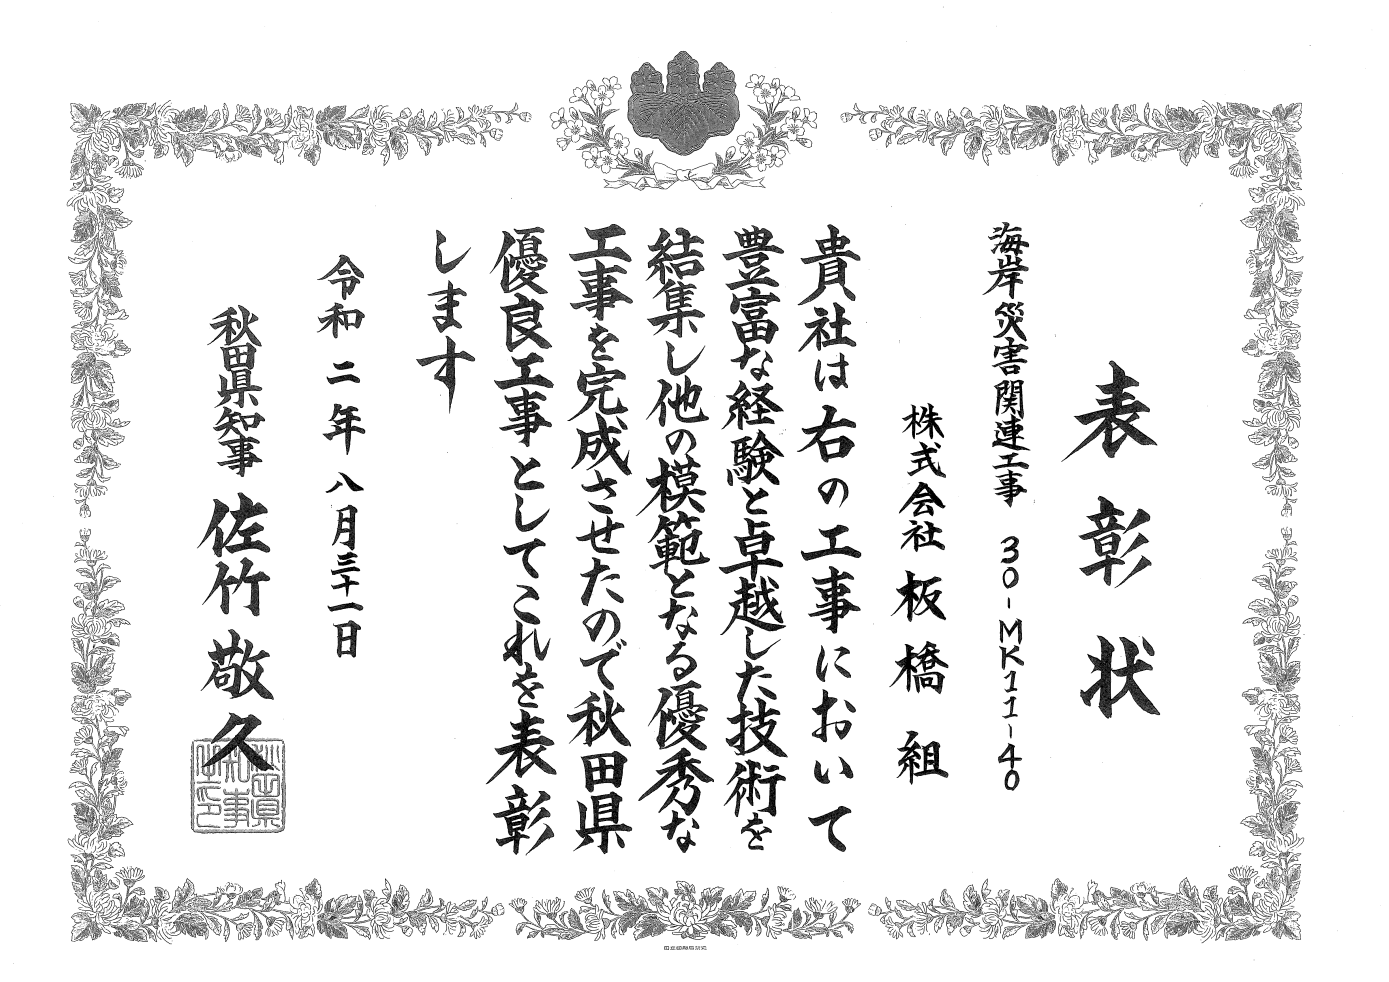 表彰状
海岸災害関連工事 30-MK11-40
株式会社 板橋組
貴社は右の工事において
豊富な経験と卓越した技術を
結集し他の模範となる優秀な
工事を完成させたので秋田県
優良工事としてこれを表彰
します
令和二年八月三十一日
秋田県知事 佐竹敬久